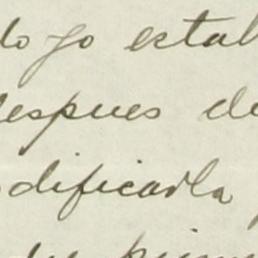 do yo estab
despues de
dificarla